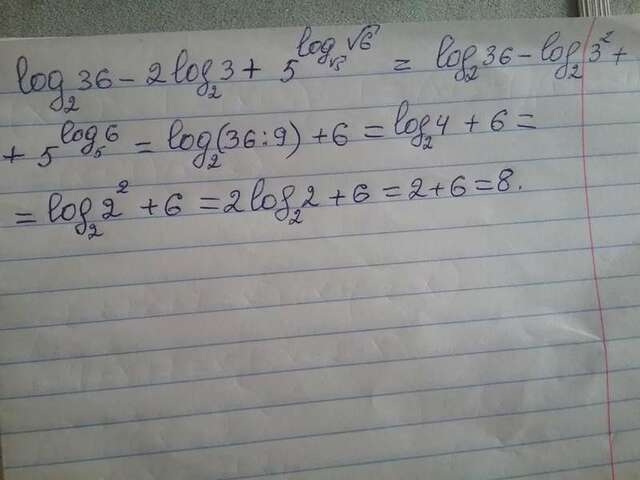 log₂36 − 2log₂3 + 5^(log_√5 √6) = log₂36 − log₂3² +
+ 5^(log₅6) = log₂(36:9) + 6 = log₂4 + 6 =
= log₂2² + 6 = 2log₂2 + 6 = 2+6 = 8.